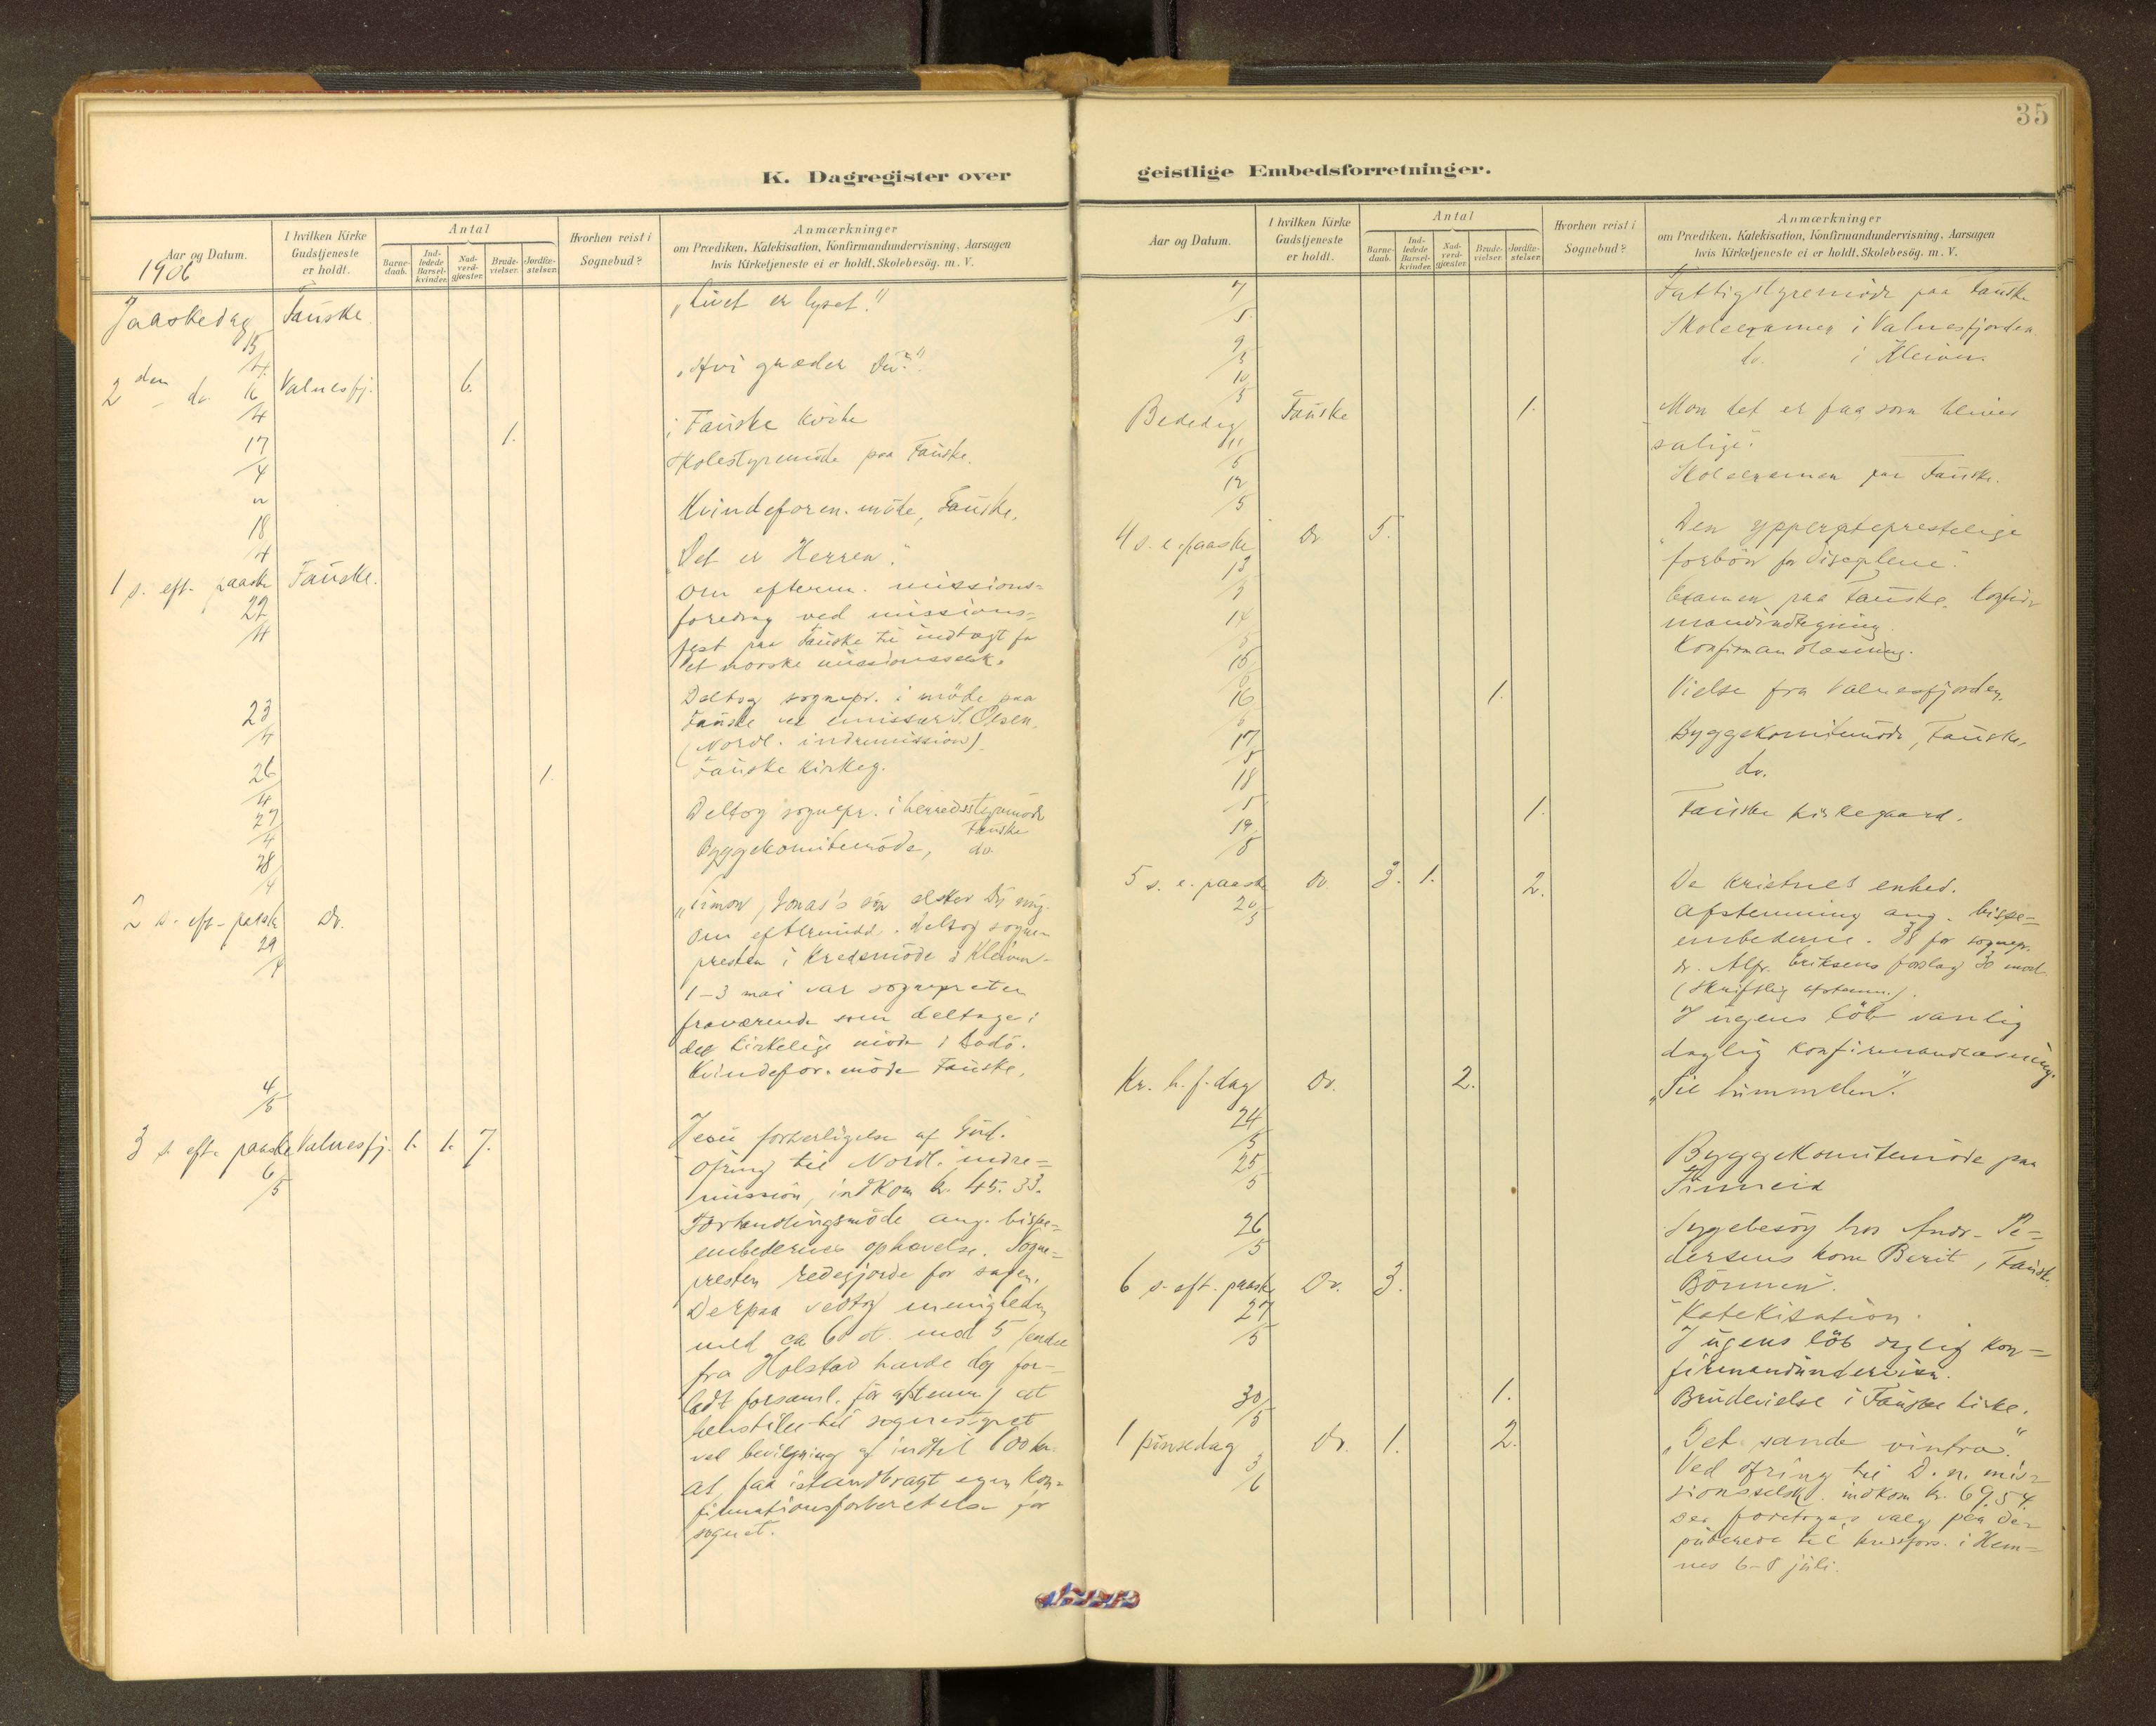 35
K. Dagregister over
geistlige Embedsforretninger.
Aar og Datum.
1906
I hvilken Kirke
Gudstjeneste
er holdt.
Antal
Barne-
daab.
Ind-
ledede
Barsel-
kvinder.
Nad-
verd-
gjæster.
Brude-
vielser.
Jordfæ-
stelser.
Hvorhen reist i
Sognebud?
Anmærkninger
om Prædiken, Katekisation, Konfirmandundervisning, Aarsagen
hvis Kirketjeneste ei er holdt, Skolebesög. m. V.
Paaskedag 15/4 Fauske „Livet er lyset."
2den do. 16/4 Valnesfj. 6. „Hvi græder Du?"
17/4 1. i Fauske kirke
" Skolestyremöde paa Fauske.
18/4 Kvindeforen. möde, Fauske.
1 s. eft. paaske 22/4 Fauske. „Det er Herren."
Om efterm. missions=
foredrag ved missions=
fest paa Fauske til indtægt for
det norske missionsselsk.
23/4 Deltog sognepr. i möde paa
Fauske ved emissær S. Olsen.
(Nordl. indremission)
26/4 1. Fauske kirkeg.
27/4 Deltog sognepr. i herredsstyremöde
Fauske
28/4 Byggekomitemöde, do
2 s. eft. paaske 29/4 Do. „Simon, Jonas's sön elsker Du mig.
Om eftermidd. deltog sogne-
presten i kredsmöde i Kleiven.
1-3 mai var sognepresten
fraværende som deltager i
det kirkelige möde i Bodö.
4/5 Kvindefor. möde Fauske.
3 s. eft. paaske 6/5 Valnesfj. 1. 1. 7. Jesu forherligelse af Gud.
Ofring til Nordl. indre=
mission, indkom kr. 45.33.
Forhandlingsmöde ang. bispe=
embedernes ophævelse. Sogne=
presten redegjorde for sagen.
Derpaa vedtog menigheden
med ca 60 st. mod 5 (endel
fra Holstad havde dog for-
ladt forsaml. för afstemn.) at
henstille til sognestyret
ved bevilgning af indtil 100 kr.
at faa istandbragt egen kon=
firmationsforberedelse for
sognet.
Aar og Datum.
I hvilken Kirke
Gudstjeneste
er holdt.
Antal
Barne-
daab.
Ind-
ledede
Barsel-
kvinder.
Nad-
verd-
gjæster.
Brude-
vielser.
Jordfæ-
stelser.
Hvorhen reist i
Sognebud?
Anmærkninger
om Prædiken, Katekisation, Konfirmandundervisning, Aarsagen
hvis Kirketjeneste ei er holdt, Skolebesög. m. V.
7/5 Fattigstyremöde paa Fauske
9/5 Skoleexamen i Valnesfjorden.
10/5 do. i Kleiven.
Bededag 11/5 Fauske 1. Mon det er faa som bliver
salige."
12/5 Skoleexamen paa Fauske.
4 s. e. paaske 13/5 Do. 5. „Den ypperstepresteligе
forbön for disciplene."
14/5 Examen paa Fauske. Konfir
mandindtegning.
15/5 Konfirmandlæsning.
16/5 1. Vielse fra Valnesfjorden.
17/5 Byggekomitemöde, Fauske.
18/5 do.
19/5 1. Fauske kirkegaard.
5 s. e. paaske 20/5 Do. 3. 1. 2. De kristnes enhed.
Afstemning ang. bispe=
embederne. 38 for sognepr.
dr. Alfr. Eriksens forslag 30 mod.
(Skriftlig afstemn.).
I ugens löb vanlig
daglig konfirmandlæsning.
Kr. h. f. dag 24/5 Do. 2. „Til himmelen".
25/5 Byggekomitemöde paa
Finneid
26/5 Sygebesög hos Andr. Pe=
dersens kone Berit, Fauske.
6 s. eft. paaske 27/5 Do. 3. Bönnen".
Katekisation.
I ugens löb daglig kon=
firmandundervisn.
30/5 1. Brudevielse i Fauske kirke.
1 pinsedag 3/6 Do. 1. 2. „Det sande vintræ."
Ved ofring til D. n. mis=
sionsselsk. indkom kr. 69.54.
foretoges valg paa de=
puterede til kredsfors. i Hem=
nes 6-8 juli.